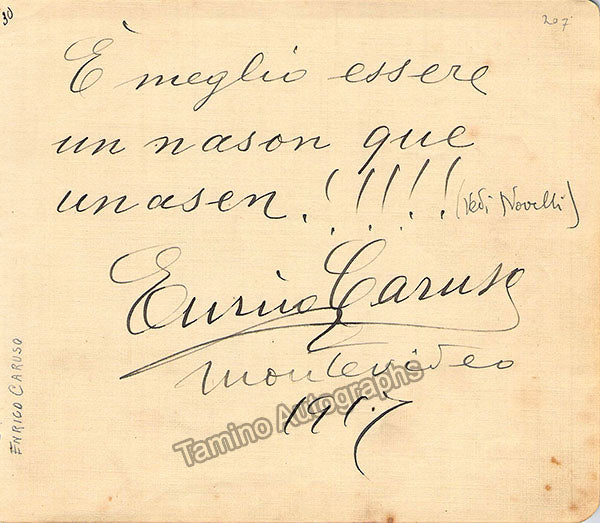 30
207
È meglio essere
un nason que
unasen.!!!!! (Vedi Novelli)
Enrico Caruso
Montevideo
1917
ENRICO CARUSO
Tamino Autographs